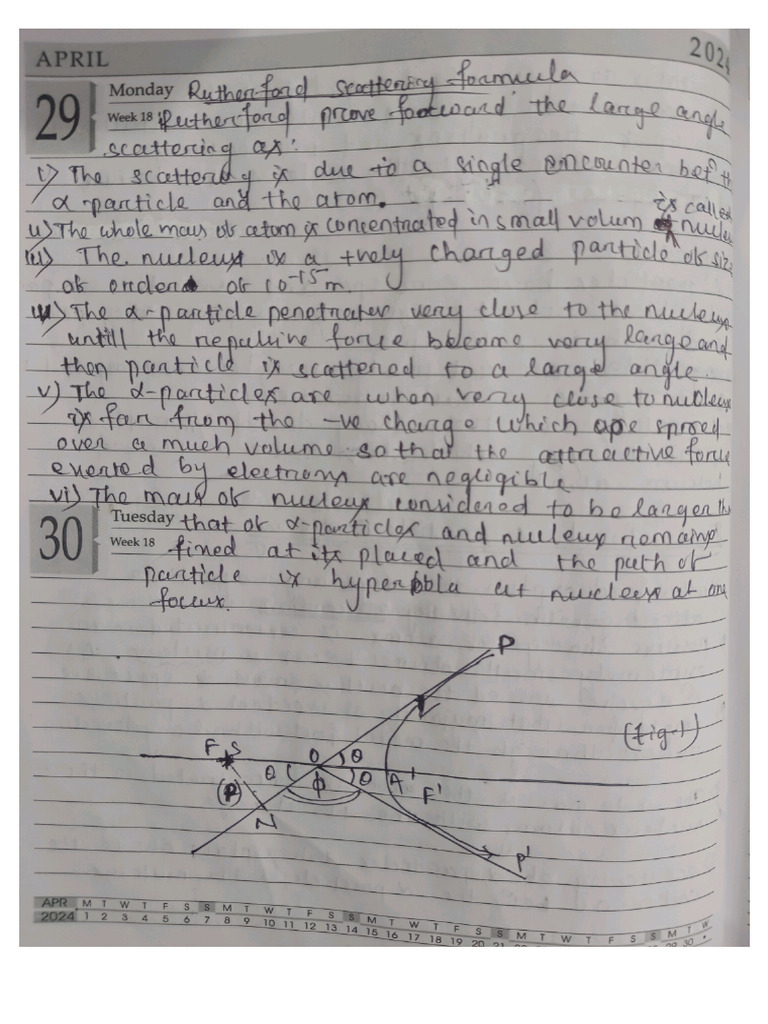 APRIL 2024
29 Monday Rutherford scattering formula
Week 18 Rutherford prove foorward the large angle
scattering as:
i) The scattering is due to a single encounter bet th
α-particle and the atom.
ii) The whole mass of atom is concentrated in small volum is called nucleu
iii) The nucleus is a +vely charged particle of size
of order of 10⁻¹⁵m.
iv) The α-particle penetrates very close to the nucleus
untill the repulsive force become very large and
then particle is scattered to a large angle.
v) The α-particles are when very close to nucleus
is far from the -ve charge which are spread
over a much volume so that the attractive force
exerted by electrons are negligible
vi) The mass of nucleus considered to be larger th
30 Tuesday that of α-particles and nucleus remains
Week 18 fixed at its placed and the path of
particle is hyperbola at nucleus at one
focus.
P
(fig-1)
F S O θ
θ θ A F'
(P) ϕ
N
P'
APR M T W T F S S M T W T F S S M T W T F S S M T W T F S S M T W
2024 1 2 3 4 5 6 7 8 9 10 11 12 13 14 15 16 17 18 19 20 21 29 30